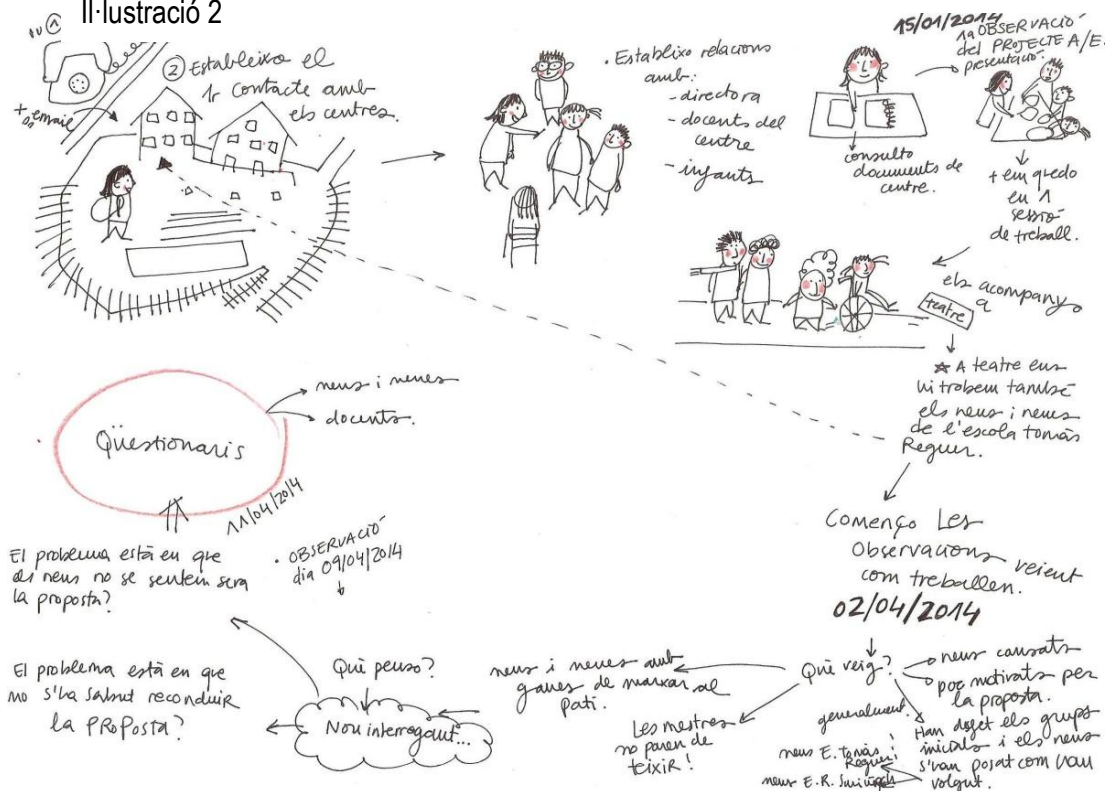 Il·lustració 2
1
+ email
2 Estableixo el
1r contacte amb
els centres.
• Establixo relacions
amb:
- directora
- docents del
centre
- infants
consulto
documents de
centre.
15/01/2014
1a OBSERVACIÓ
del PROJECTE A/E.
presentació.
+ em quedo
en 1
sessió
de treball.
els acompanyo
a
teatre
★ A teatre ens
hi trobem també
els nens i nenes
de l'escola tomàs
Reguer.
Començo Les
Observacions veient
com treballen.
02/04/2014
Què veig?
nens cansats
poc motivats per
la proposta.
Han desfet els grups
inicials i els nens
s'han posat com han
volgut.
generalment
nens E. Tomàs
Reguer!
nens E.R.
nens i nenes amb
ganes de marxar al
pati.
Les mestres
no paren de
teixir!
Què penso?
Nou interrogant...
El problema està en que
no s'ha sabut reconduir
la PROPOSTA?
El problema està en que
els nens no se senten seva
la proposta?
• OBSERVACIÓ
dia 09/04/2014
11/04/2014
Qüestionaris
nens i nenes
docents.